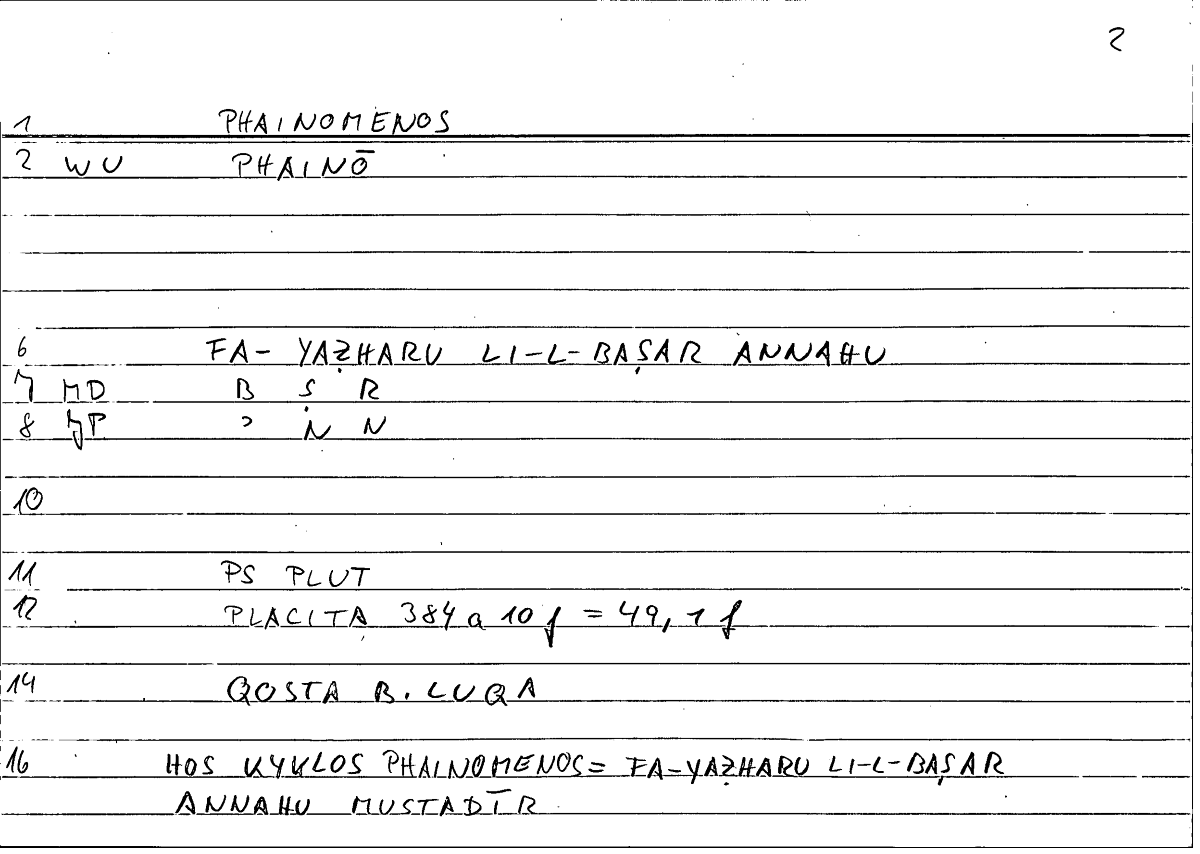 2
1 PHAINOMENOS
2 WU PHAINŌ
6 FA- YAẒHARU LI-L-BAṢAR ANNAHU
7 MD B Ṣ R
8 ʾ N N
10
11 PS PLUT
12 PLACITA 384 a 10 f = 49, 1 f
14 QOSTA B. LUQA
16 HOS KYKLOS PHAINOMENOS= FA-YAẒHARU LI-L-BAṢAR
ANNAHU MUSTADĪR